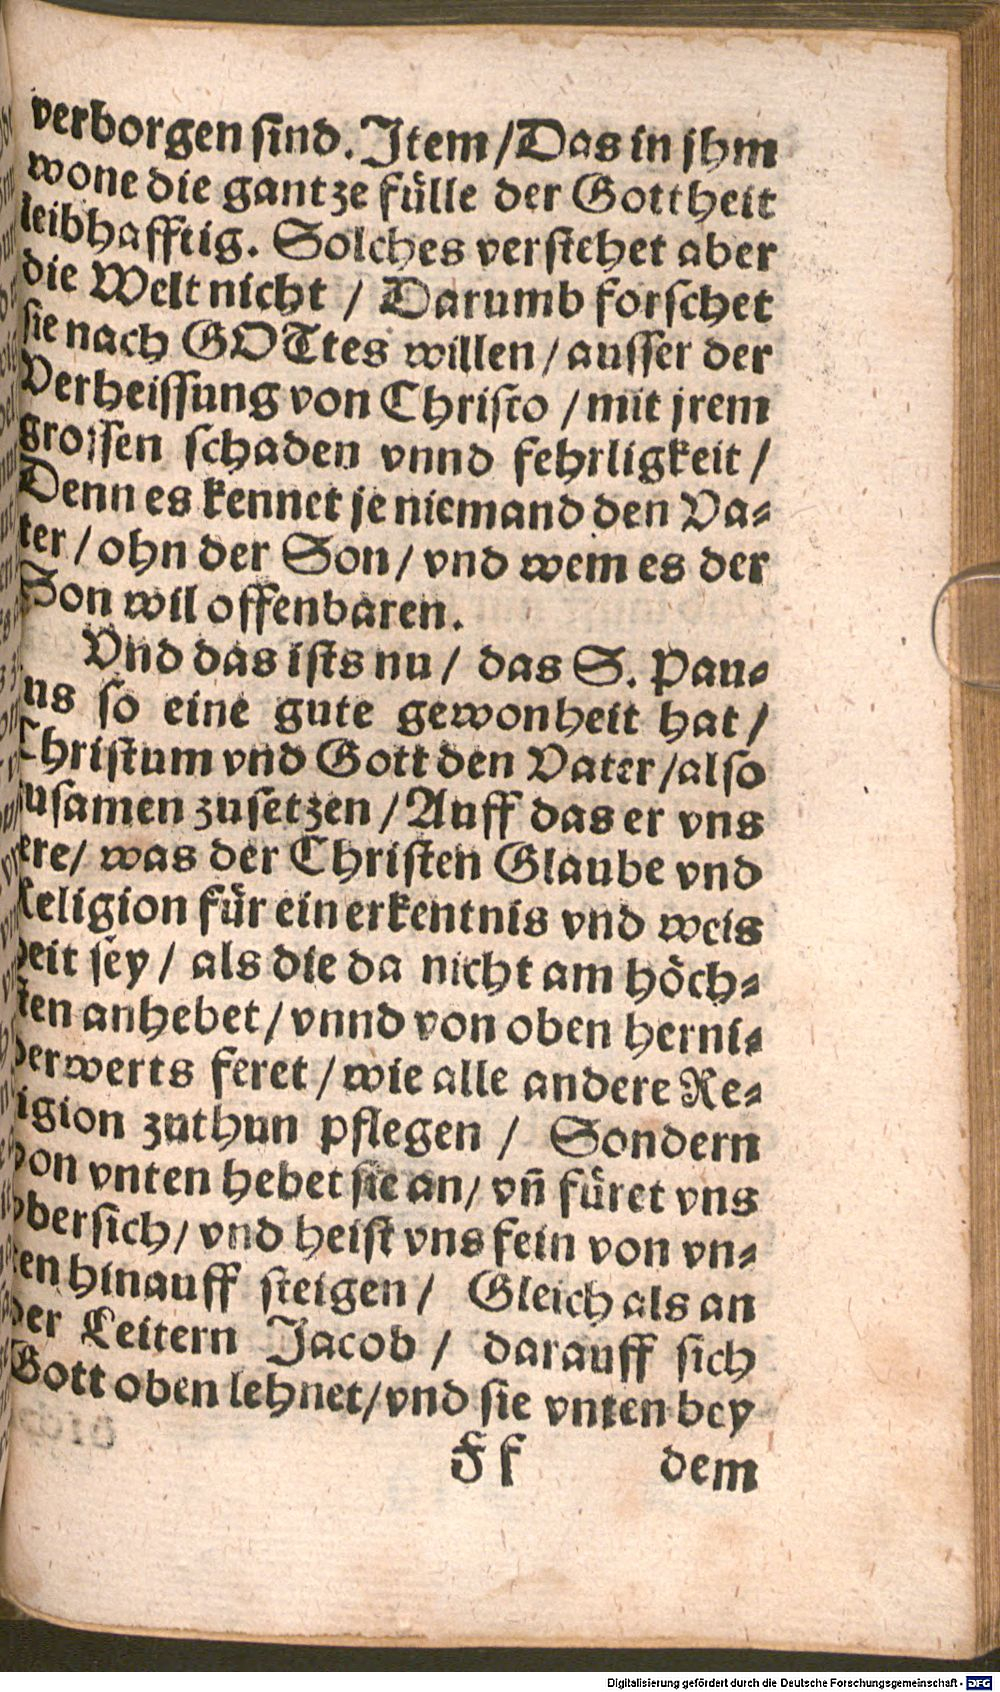 verborgen sind. Item / Das in jhm
wone die gantze fülle der Gottheit
leibhafftig. Solches verstehet aber
die Welt nicht / Darumb forschet
sie nach GOTtes willen / ausser der
Verheissung von Christo / mit jrem
grossen schaden vnnd fehrligkeit /
Denn es kennet je niemand den Va-
ter / ohn der Son / vnd wem es der
Son wil offenbaren.
Vnd das ists nu / das S. Pau-
us so eine gute gewonheit hat /
Christum vnd Gott den Vater / also
usamen zusetzen / Auff das er vns
ere / was der Christen Glaube vnd
Religion für ein erkentnis vnd weis
heit sey / als die da nicht am höch-
sten anhebet / vnnd von oben herni-
derwerts feret / wie alle andere Re-
igion zuthun pflegen / Sondern
von vnten hebet sie an / vñ füret vns
obersich / vnd heist vns fein von vn-
ten hinauff steigen / Gleich als an
der Leitern Jacob / darauff sich
Gott oben lehnet / vnd sie vnten bey
Ff dem
Digitalisierung gefördert durch die Deutsche Forschungsgemeinschaft - DFG